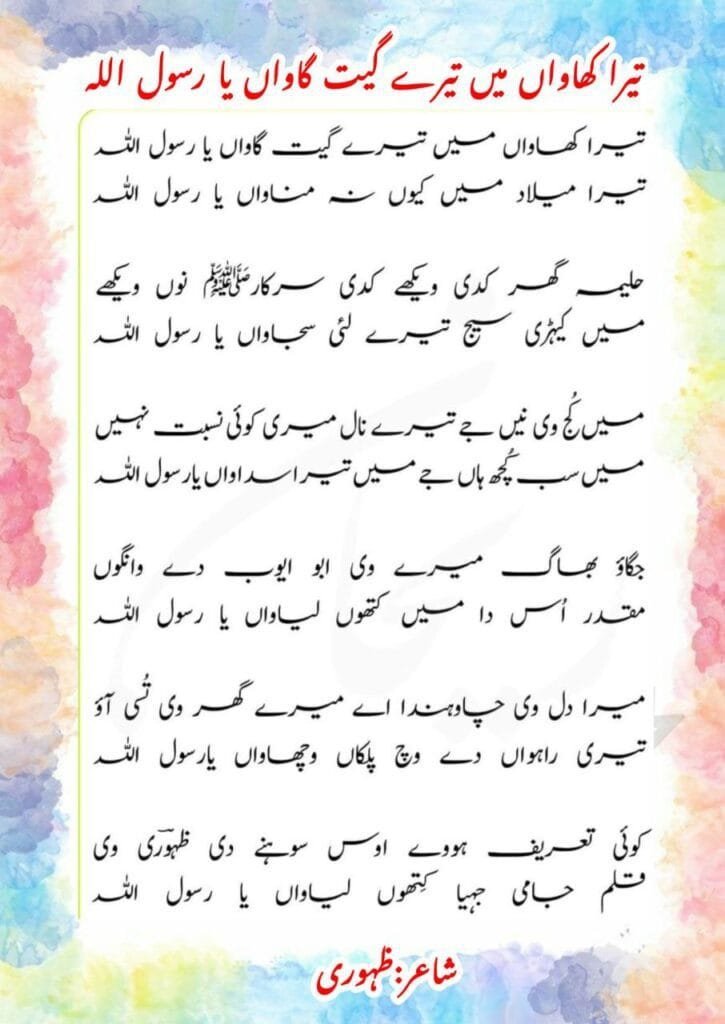 تیرا کھاواں میں تیرے گیت گاواں یا رسول اللہ
تیرا کھاواں میں تیرے گیت گاواں یا رسول اللہ
تیرا میلاد میں کیوں نہ مناواں یا رسول اللہ
حلیمہ گھر کدی ویکھے کدی سرکارﷺ نوں ویکھے
میں کیہڑی سیج تیرے لئی سجاواں یا رسول اللہ
میں کُج وی نیں جے تیرے نال میری کوئی نسبت نہیں
میں سب کُچھ ہاں جے میں تیرا سداواں یارسول اللہ
جگاؤ بھاگ میرے وی ابو ایوب دے وانگوں
مقدر اُس دا میں کتھوں لیاواں یا رسول اللہ
میرا دل وی چاوہندا اے میرے گھر وی تُسی آؤ
تیری راہواں دے وچ پلکاں وچھاواں یارسول اللہ
کوئی تعریف ہووے اوس سوہنے دی ظہوؔری وی
قلم جامی جہیا کِتھوں لیاواں یا رسول اللہ
شاعر:ظہوری